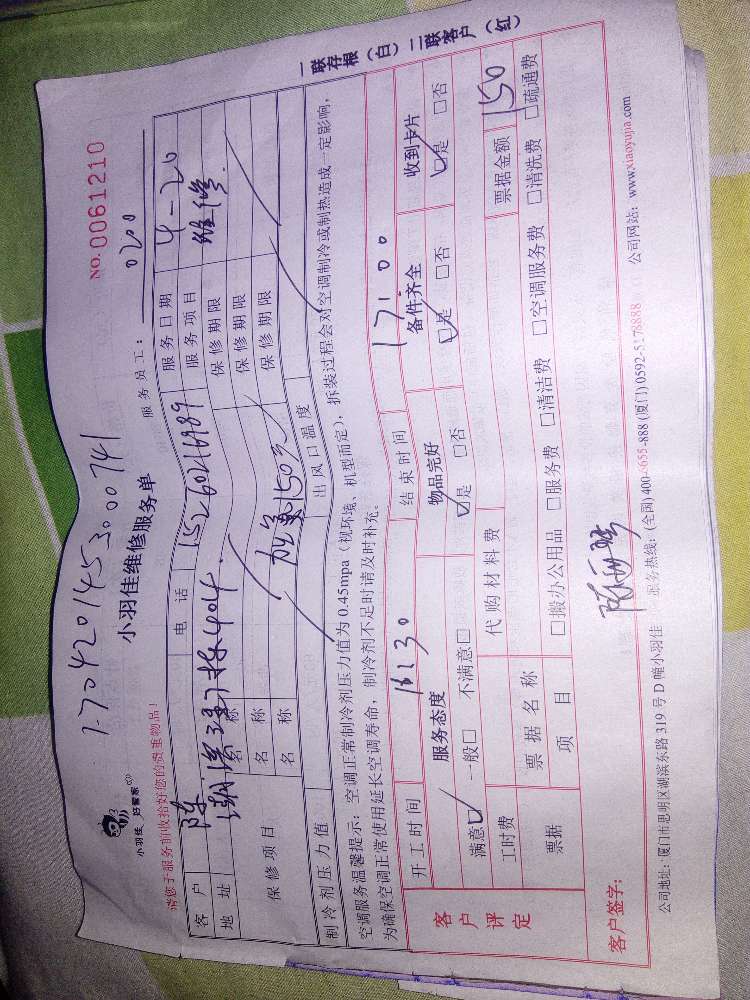 一联存根（白）二联客户（红）
1704201453000741
小羽佳 好管家
小羽佳维修服务单
NO.0061210
请您于服务前收拾好您的贵重物品！
服务员工：0200
客户 陈 电话 15260216989 服务日期 4-20
地址 服务项目 维修
保修项目 名称 保修期限
名称 保修期限
名称 保修期限
制冷剂压力值 出风口温度
空调服务温馨提示：空调正常制冷剂压力值为0.45mpa（视环境、机型而定），拆装过程会对空调制冷或制热造成一定影响，
为确保空调正常使用延长空调寿命，制冷剂不足时请及时补充。
开工时间 16130 结束时间 17:00
客户评定
服务态度 物品完好 备件齐全 收到卡片
满意☑ 一般□ 不满意□ ☑是 □否 ☑是 □否 ☑是 □否
工时费 代购材料费 票据金额 150
票据 票据名称
项目 □搬办公用品 □服务费 □清洁费 □空调服务费 □清洗费 □疏通费
客户签字：
公司地址：厦门市思明区湖滨东路319号D幢小羽佳 服务热线：(全国)400-6655-888(厦门)0592-5178888 公司网站：www.xiaoyujia.com